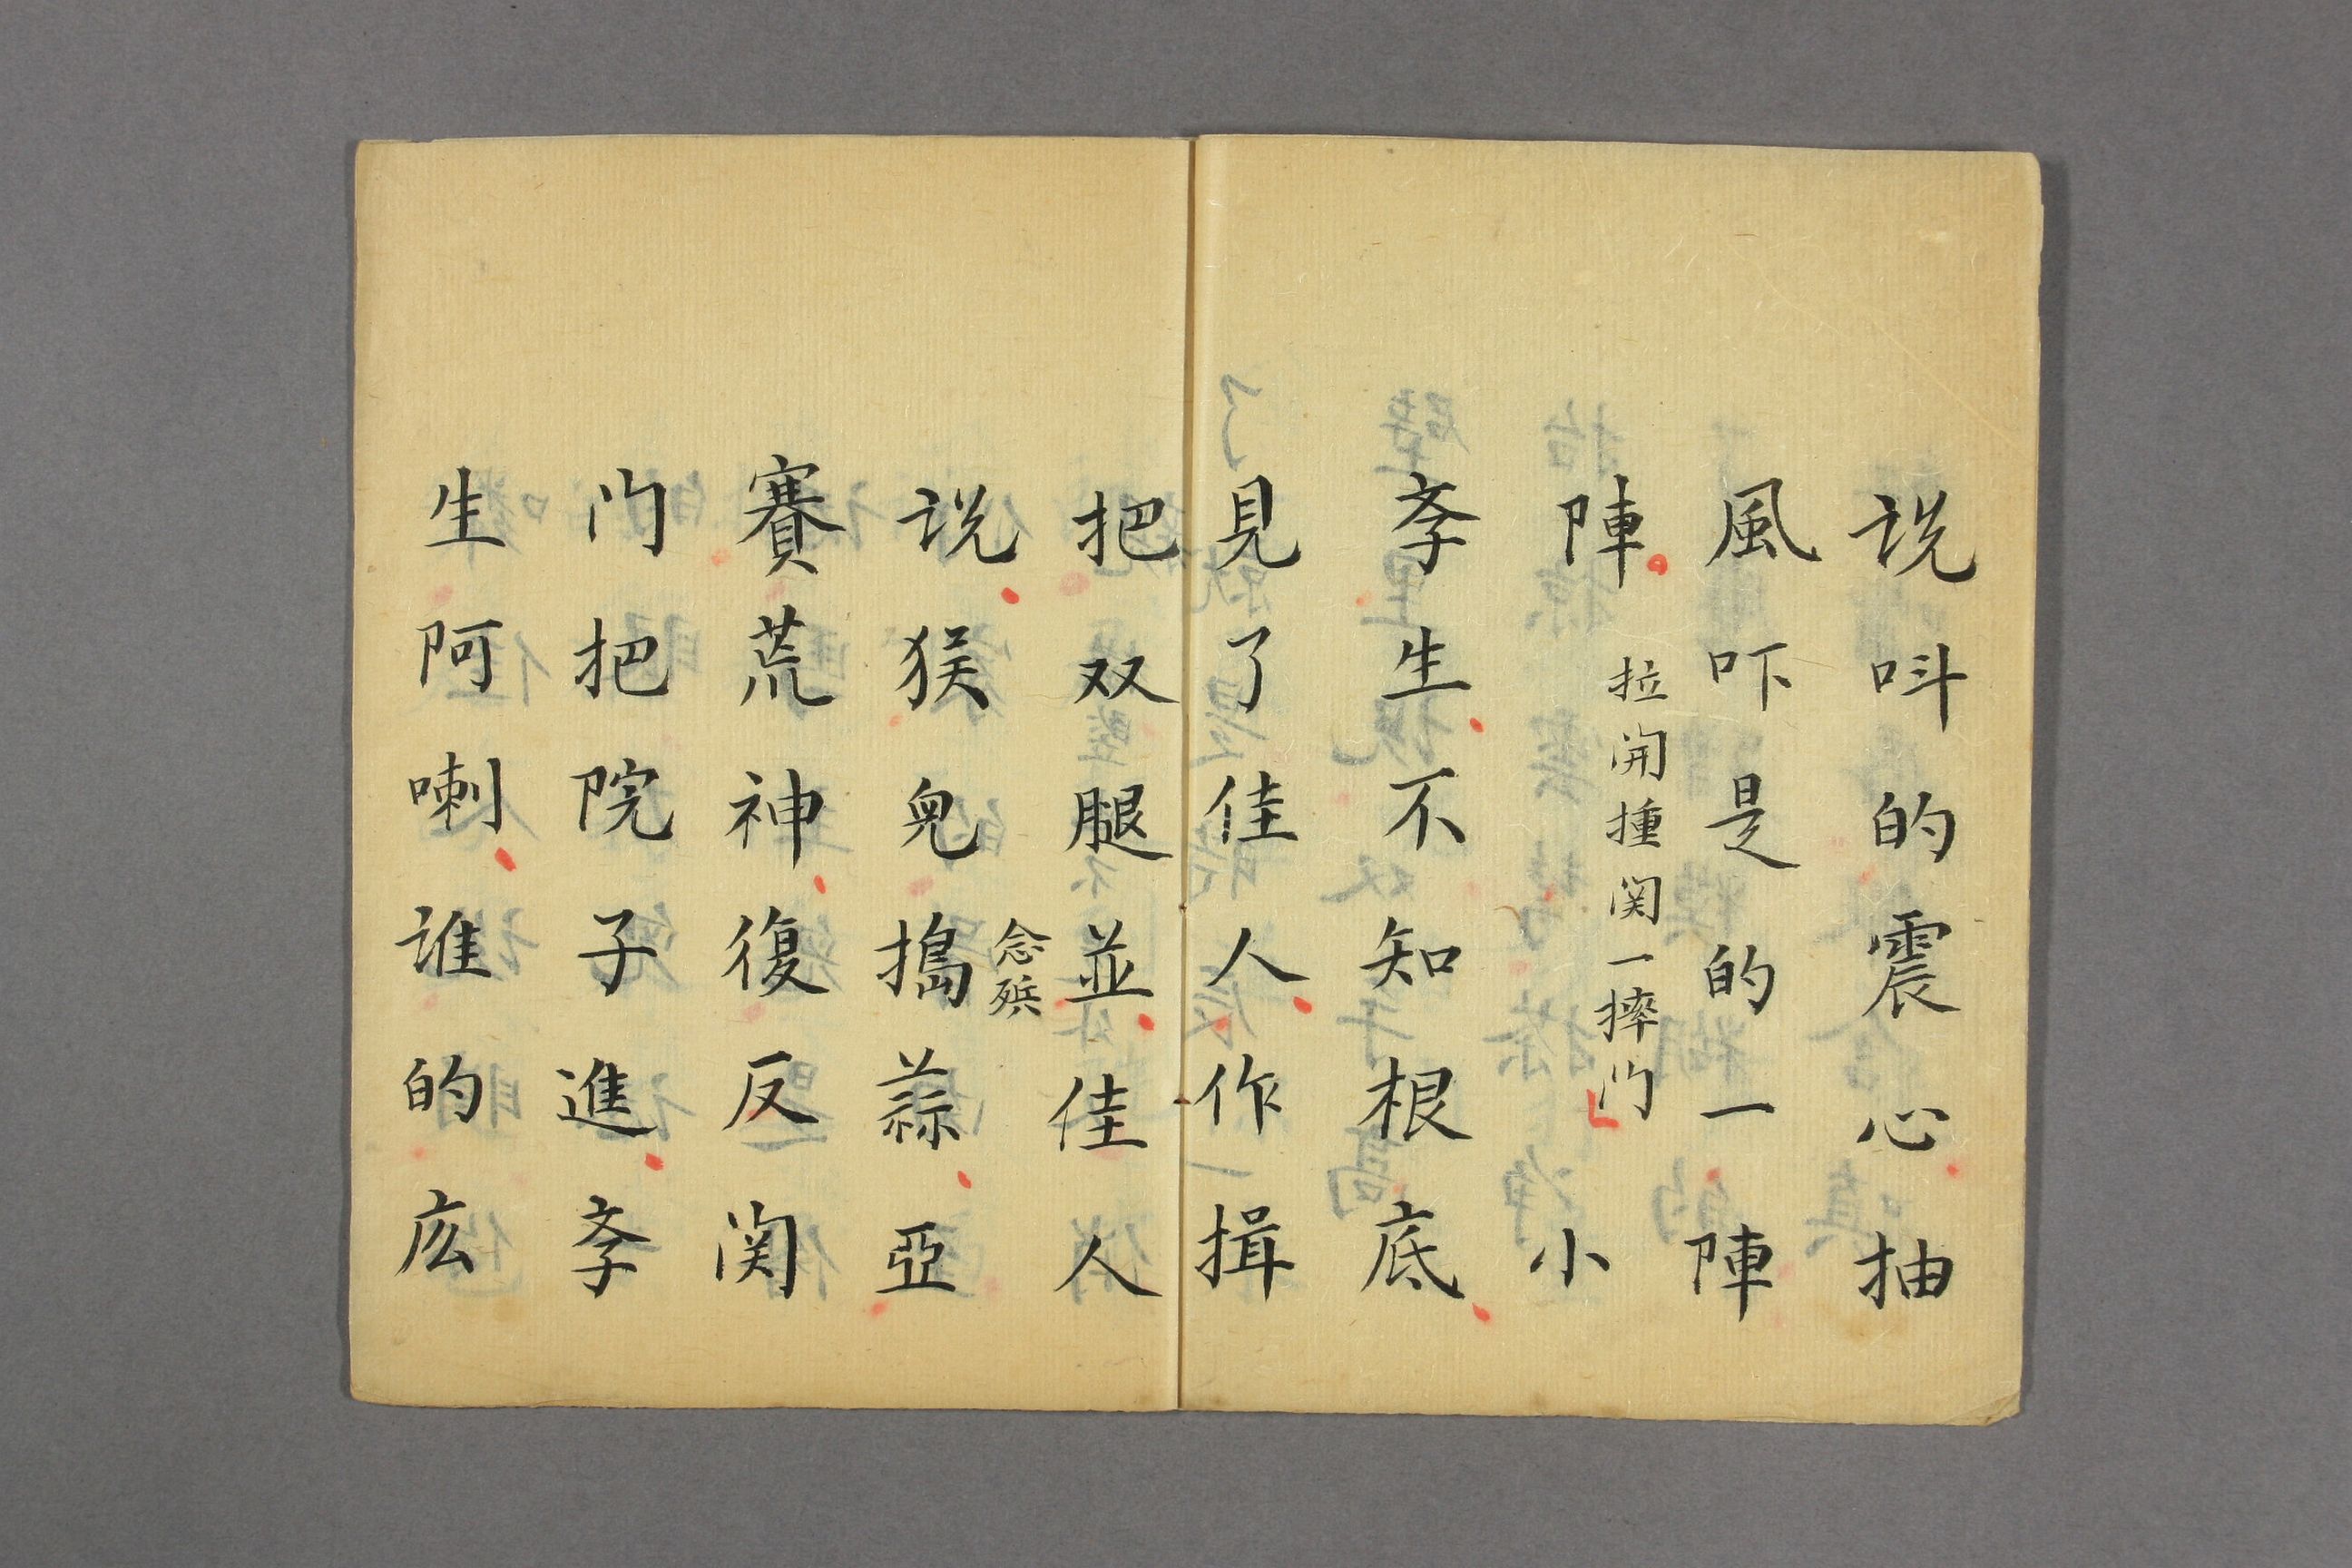 说呌的震心抽
風吓是的一陣
陣
拉開撞関一摔门
小
斈生不知根底
見了佳人作揖
把双腿並佳人
说猴兒搗蒜亞
念殡
賽荒神復反関
门把院子進斈
生阿喇谁的庅